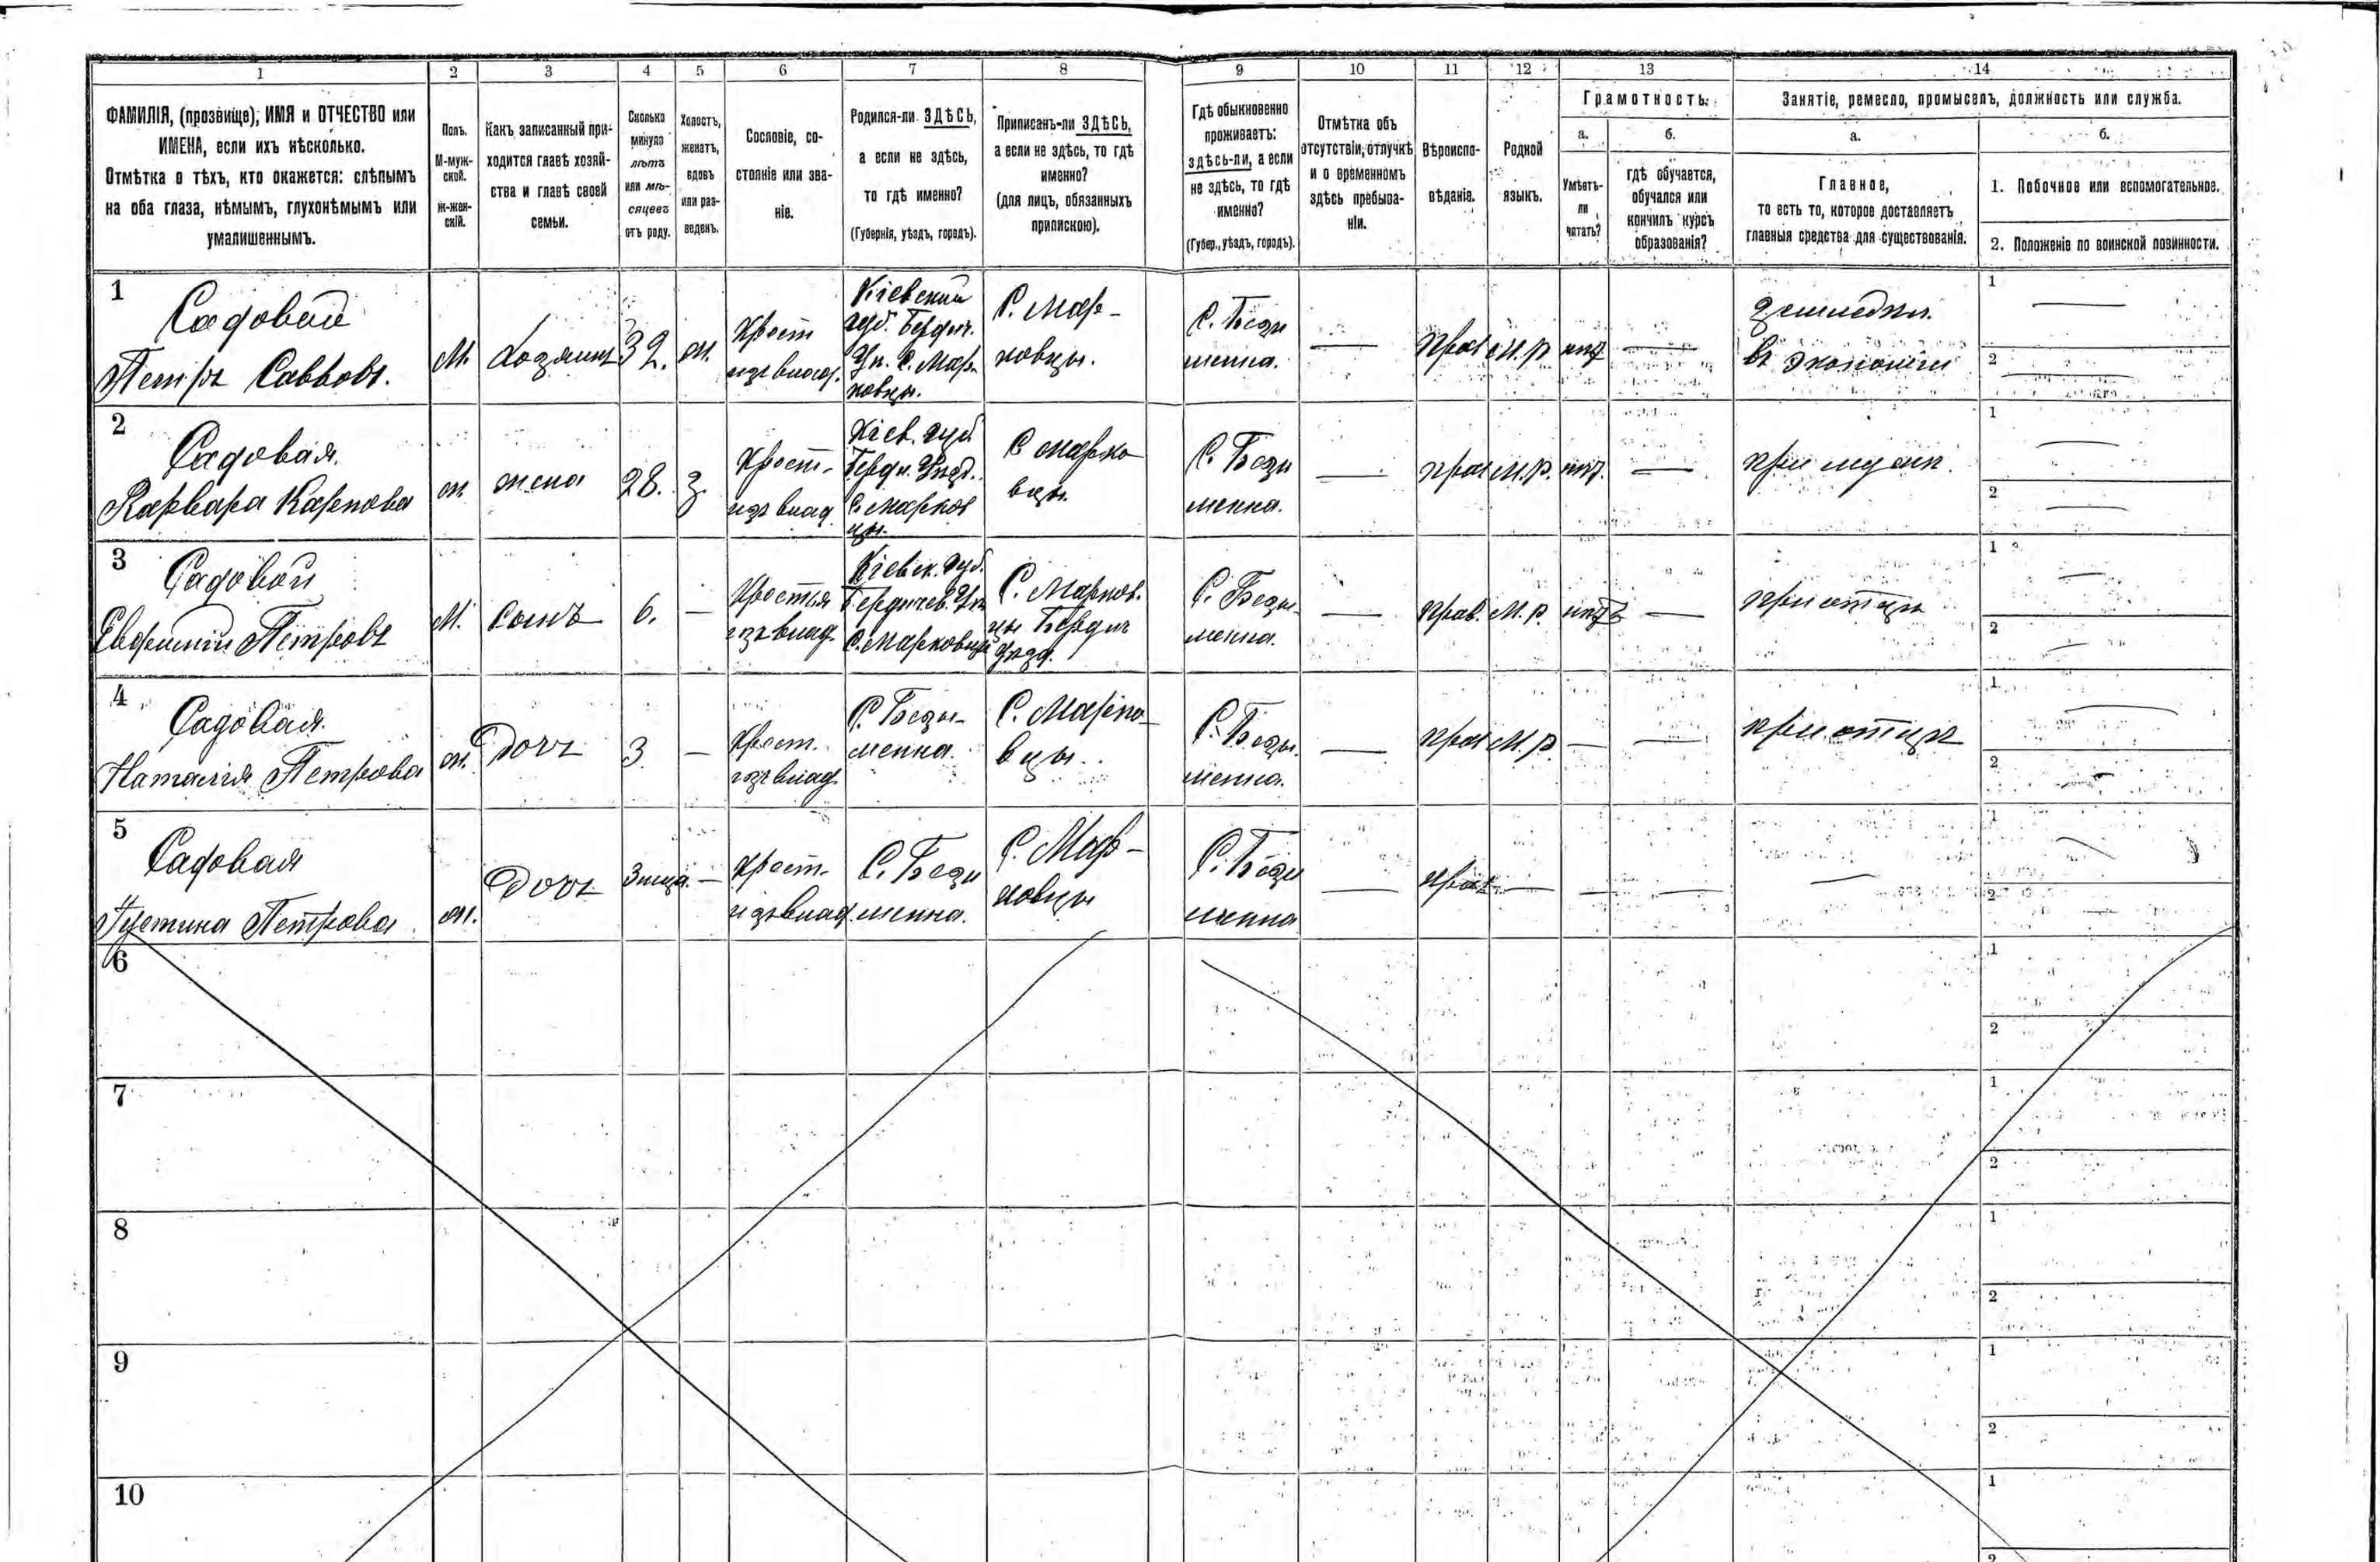 1 2 3 4 5 6 7 8 9 10 11 12 13 14
ФАМИЛІЯ, (прозвище), ИМЯ и ОТЧЕСТВО или
ИМЕНА, если ихъ нѣсколько.
Отмѣтка о тѣхъ, кто окажется: слѣпымъ
на оба глаза, нѣмымъ, глухонѣмымъ или
умалишеннымъ.
Полъ.
М-муж-
ской.
Ж-жен-
скій.
Какъ записанный при-
ходится главѣ хозяй-
ства и главѣ своей
семьи.
Сколько
минуло
лѣтъ
или мѣ-
сяцевъ
отъ роду.
Холостъ,
женатъ,
вдовъ
или раз-
веденъ.
Сословіе, со-
стояніе или зва-
ніе.
Родился-ли ЗДѢСЬ,
а если не здѣсь,
то гдѣ именно?
(Губернія, уѣздъ, городъ).
Приписанъ-ли ЗДѢСЬ,
а если не здѣсь, то гдѣ
именно?
(для лицъ, обязанныхъ
припискою).
Гдѣ обыкновенно
проживаетъ:
здѣсь-ли, а если
не здѣсь, то гдѣ
именно?
(Губер., уѣздъ, городъ).
Отмѣтка объ
отсутствіи, отлучкѣ
и о временномъ
здѣсь пребыва-
ніи.
Вѣроиспо-
вѣданіе.
Родной
языкъ.
Грамотность.
а.
Умѣетъ-
ли
читать?
б.
гдѣ обучается,
обучался или
кончилъ курсъ
образованія?
Занятіе, ремесло, промыселъ, должность или служба.
а.
Главное,
то есть то, которое доставляетъ
главныя средства для существованія.
б.
1. Побочное или вспомогательное.
2. Положеніе по воинской повинности.
1
Садовой
Петръ Саввовъ.
М.
Хозяинъ
32.
ж.
Крест
изъ влад.
Кіевский
губ. Бердич.
Уѣ. С. Мар-
ковцы.
С. Мар-
ковцы.
С. Бези
менна.
—
Прав
М. Р
нѣт
—
земледѣл.
въ экономіи
1 —
2 —
2
Садовая.
Варвара Карпова
ж
жена
28.
з.
Крест-
изъ влад
Кіев. губ
Берди. Уѣзд.
С. Марков
цы.
С Марко
вцы.
С. Бези
менна.
—
прав
М. Р.
нѣт.
—
при мужѣ.
1 —
2 —
3
Садовой
Евфимій Петровъ
М.
Сынъ
6.
—
Крестья
изъ влад.
Кіевск. губ.
Бердичев. Уѣ
С. Марковцы
С. Марков.
цы Бердич
Уѣзд.
С. Безы-
менна.
—
Прав.
М. Р.
нѣтъ
—
при отцѣ
1 —
2 —
4
Садовая.
Наталія Петрова
ж.
Дочь
3
—
Крест.
изъ влад.
С. Безы-
менна.
С. Марко-
вцы.
С. Безы.
менна.
—
прав
М. Р.
—
—
при отцѣ
1 —
2 —
5
Садовая
Устина Петрова
ж.
Дочь
3 мѣсяц.
—
Крест-
изъ влад
С. Бези
менна.
С. Мар-
ковцы
С. Бези
менна
—
прав
—
—
—
—
1 —
2 —
6
1
2
7
1
2
8
1
2
9
1
2
10
1
2